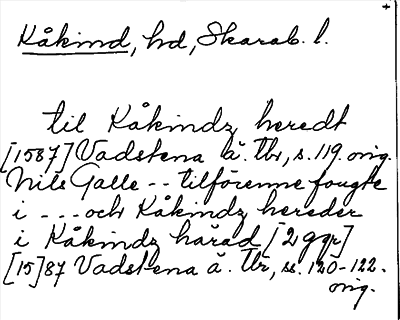 +
Kåkind, hd, Skarab. l.
til Kåkindz heredt
[1587] Vadstena ä. Tbr, s. 119. orig.
Nils Galle -- tilförenne fougte
i --- och Kåkindz hereder
i Kåkindz härad [2 ggr]
[15]87 Vadstena ä. Tbr, ss. 120-122.
orig.